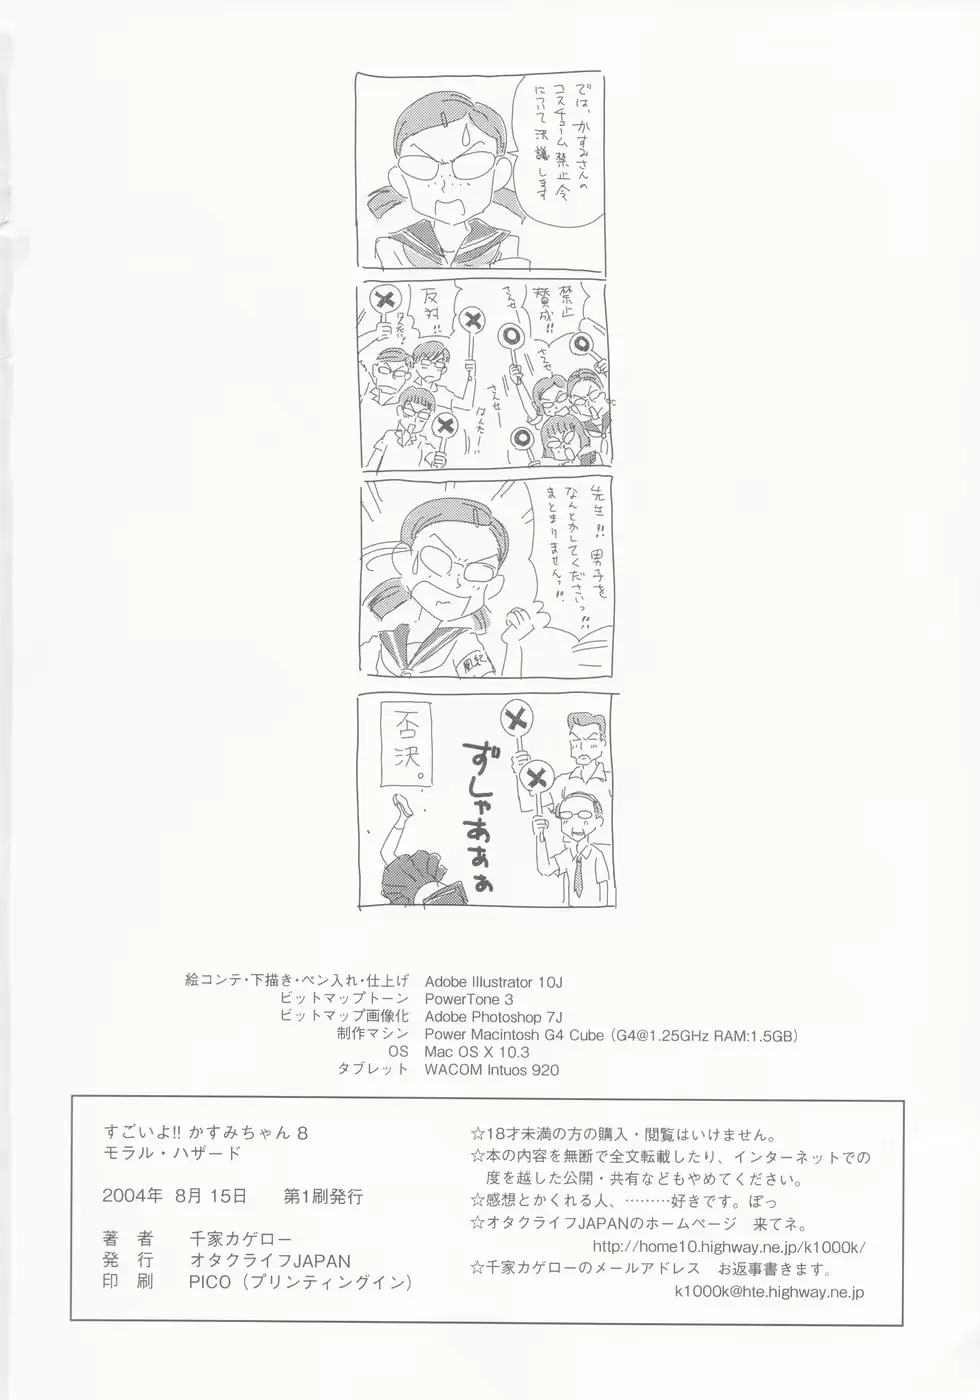 では、かすみさんの
コスチューム禁止令
について決議します
禁止
賛成!!
さんせー
さんせー
さんせー
反対!!
はんたい!
はんたー!
先生!! 男子を
なんとかしてくださいっ!!
まとまりませんっ!!
風紀
否決。
ずしゃあぁぁ
絵コンテ・下描き・ペン入れ・仕上げ Adobe Illustrator 10J
ビットマップトーン PowerTone 3
ビットマップ画像化 Adobe Photoshop 7J
制作マシン Power Macintosh G4 Cube (G4@1.25GHz RAM:1.5GB)
OS Mac OS X 10.3
タブレット WACOM Intuos 920
すごいよ!! かすみちゃん 8
モラル・ハザード
2004年 8月 15日 第1刷発行
著 者 千家カゲロー
発 行 オタクライフJAPAN
印 刷 PICO(プリンティングイン)
☆18才未満の方の購入・閲覧はいけません。
☆本の内容を無断で全文転載したり、インターネットでの
度を越した公開・共有などもやめてください。
☆感想とかくれる人、………好きです。ぽっ
☆オタクライフJAPANのホームページ 来てネ。
http://home10.highway.ne.jp/k1000k/
☆千家カゲローのメールアドレス お返事書きます。
k1000k@hte.highway.ne.jp